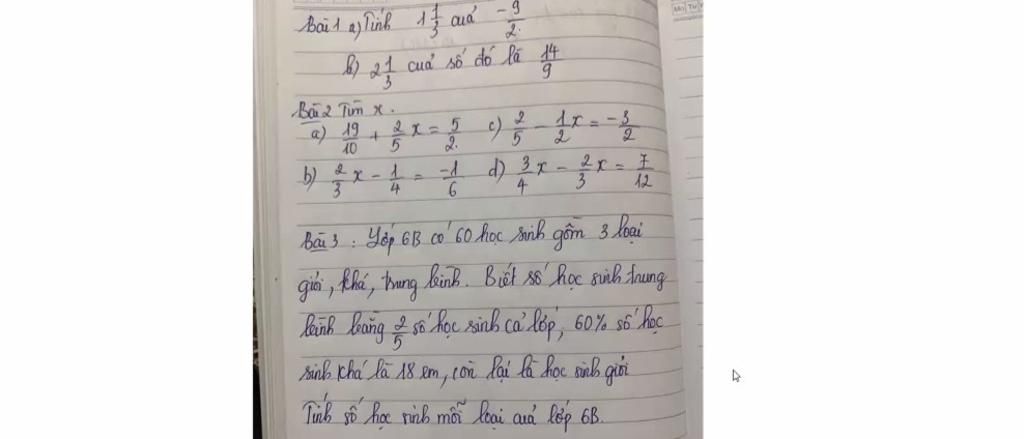 Bài 1 a) Tính 1 1/3 của -9/2
b) 2 1/3 của số đó là 14/9
Bài 2 Tìm x.
a) 19/10 + 2/5 x = 5/2 c) 2/5 - 1/2 x = -3/2
b) 2/3 x - 1/4 = -1/6 d) 3/4 x - 2/3 x = 7/12
Bài 3 : Lớp 6B có 60 học sinh gồm 3 loại
giỏi, khá, trung bình. Biết số học sinh trung
bình bằng 2/5 số học sinh cả lớp, 60% số học
sinh khá là 18 em, còn lại là học sinh giỏi
Tính số học sinh mỗi loại của lớp 6B.